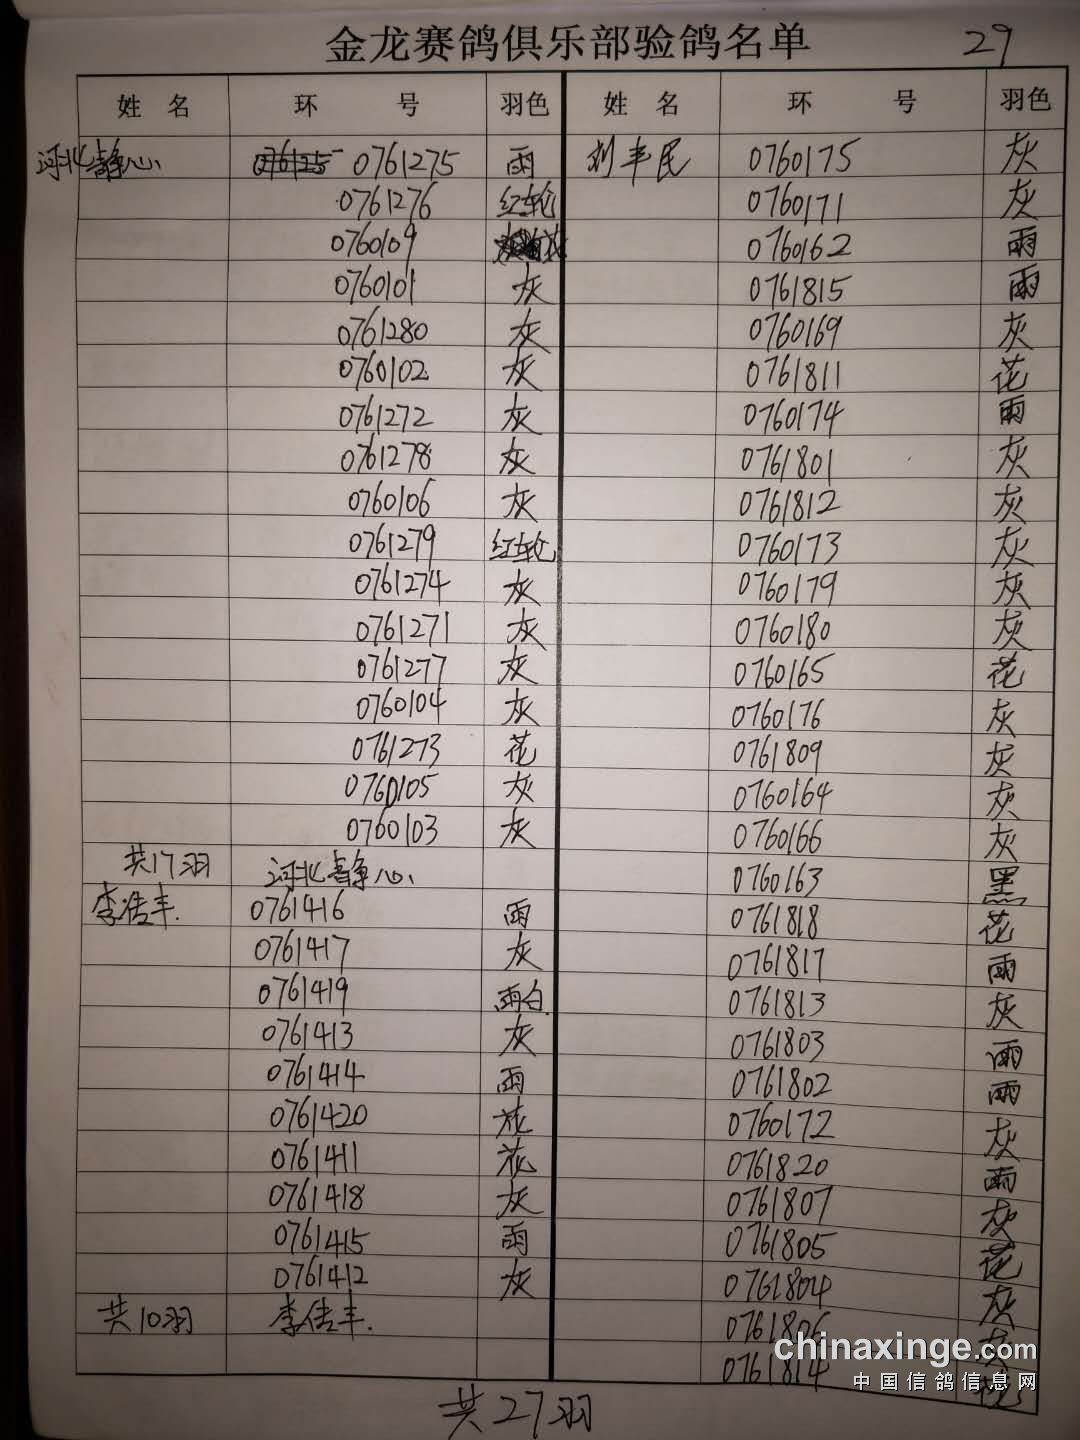 金龙赛鸽俱乐部验鸽名单 29
姓 名 环 号 羽色 姓 名 环 号 羽色
河北静心 0761275 雨 刘丰民 0760175 灰
0761276 红轮 0760171 灰
0760109 0760162 雨
0760101 灰 0761815 雨
0761280 灰 0760169 灰
0760102 灰 0761811 花
0761272 灰 0760174 雨
0761278 灰 0761801 灰
0760106 灰 0761812 灰
0761279 红轮 0760173 灰
0761274 灰 0760179 灰
0761271 灰 0760180 灰
0761277 灰 0760165 花
0760104 灰 0760176 灰
0761273 花 0761809 灰
0760105 灰 0760164 灰
0760103 灰 0760166 灰
共17羽 河北静心 0760163 黑
李浩丰 0761416 雨 0761818 花
0761417 灰 0761817 雨
0761419 雨白 0761813 灰
0761413 灰 0761803 雨
0761414 雨 0761802 雨
0761420 花 0760172 灰
0761411 花 0761820 雨
0761418 灰 0761807 灰
0761415 雨 0761805 花
0761412 灰 0761804 灰
共10羽 李浩丰 0761806 灰
0761814 花
共27羽
chinaxinge.com
中国信鸽信息网